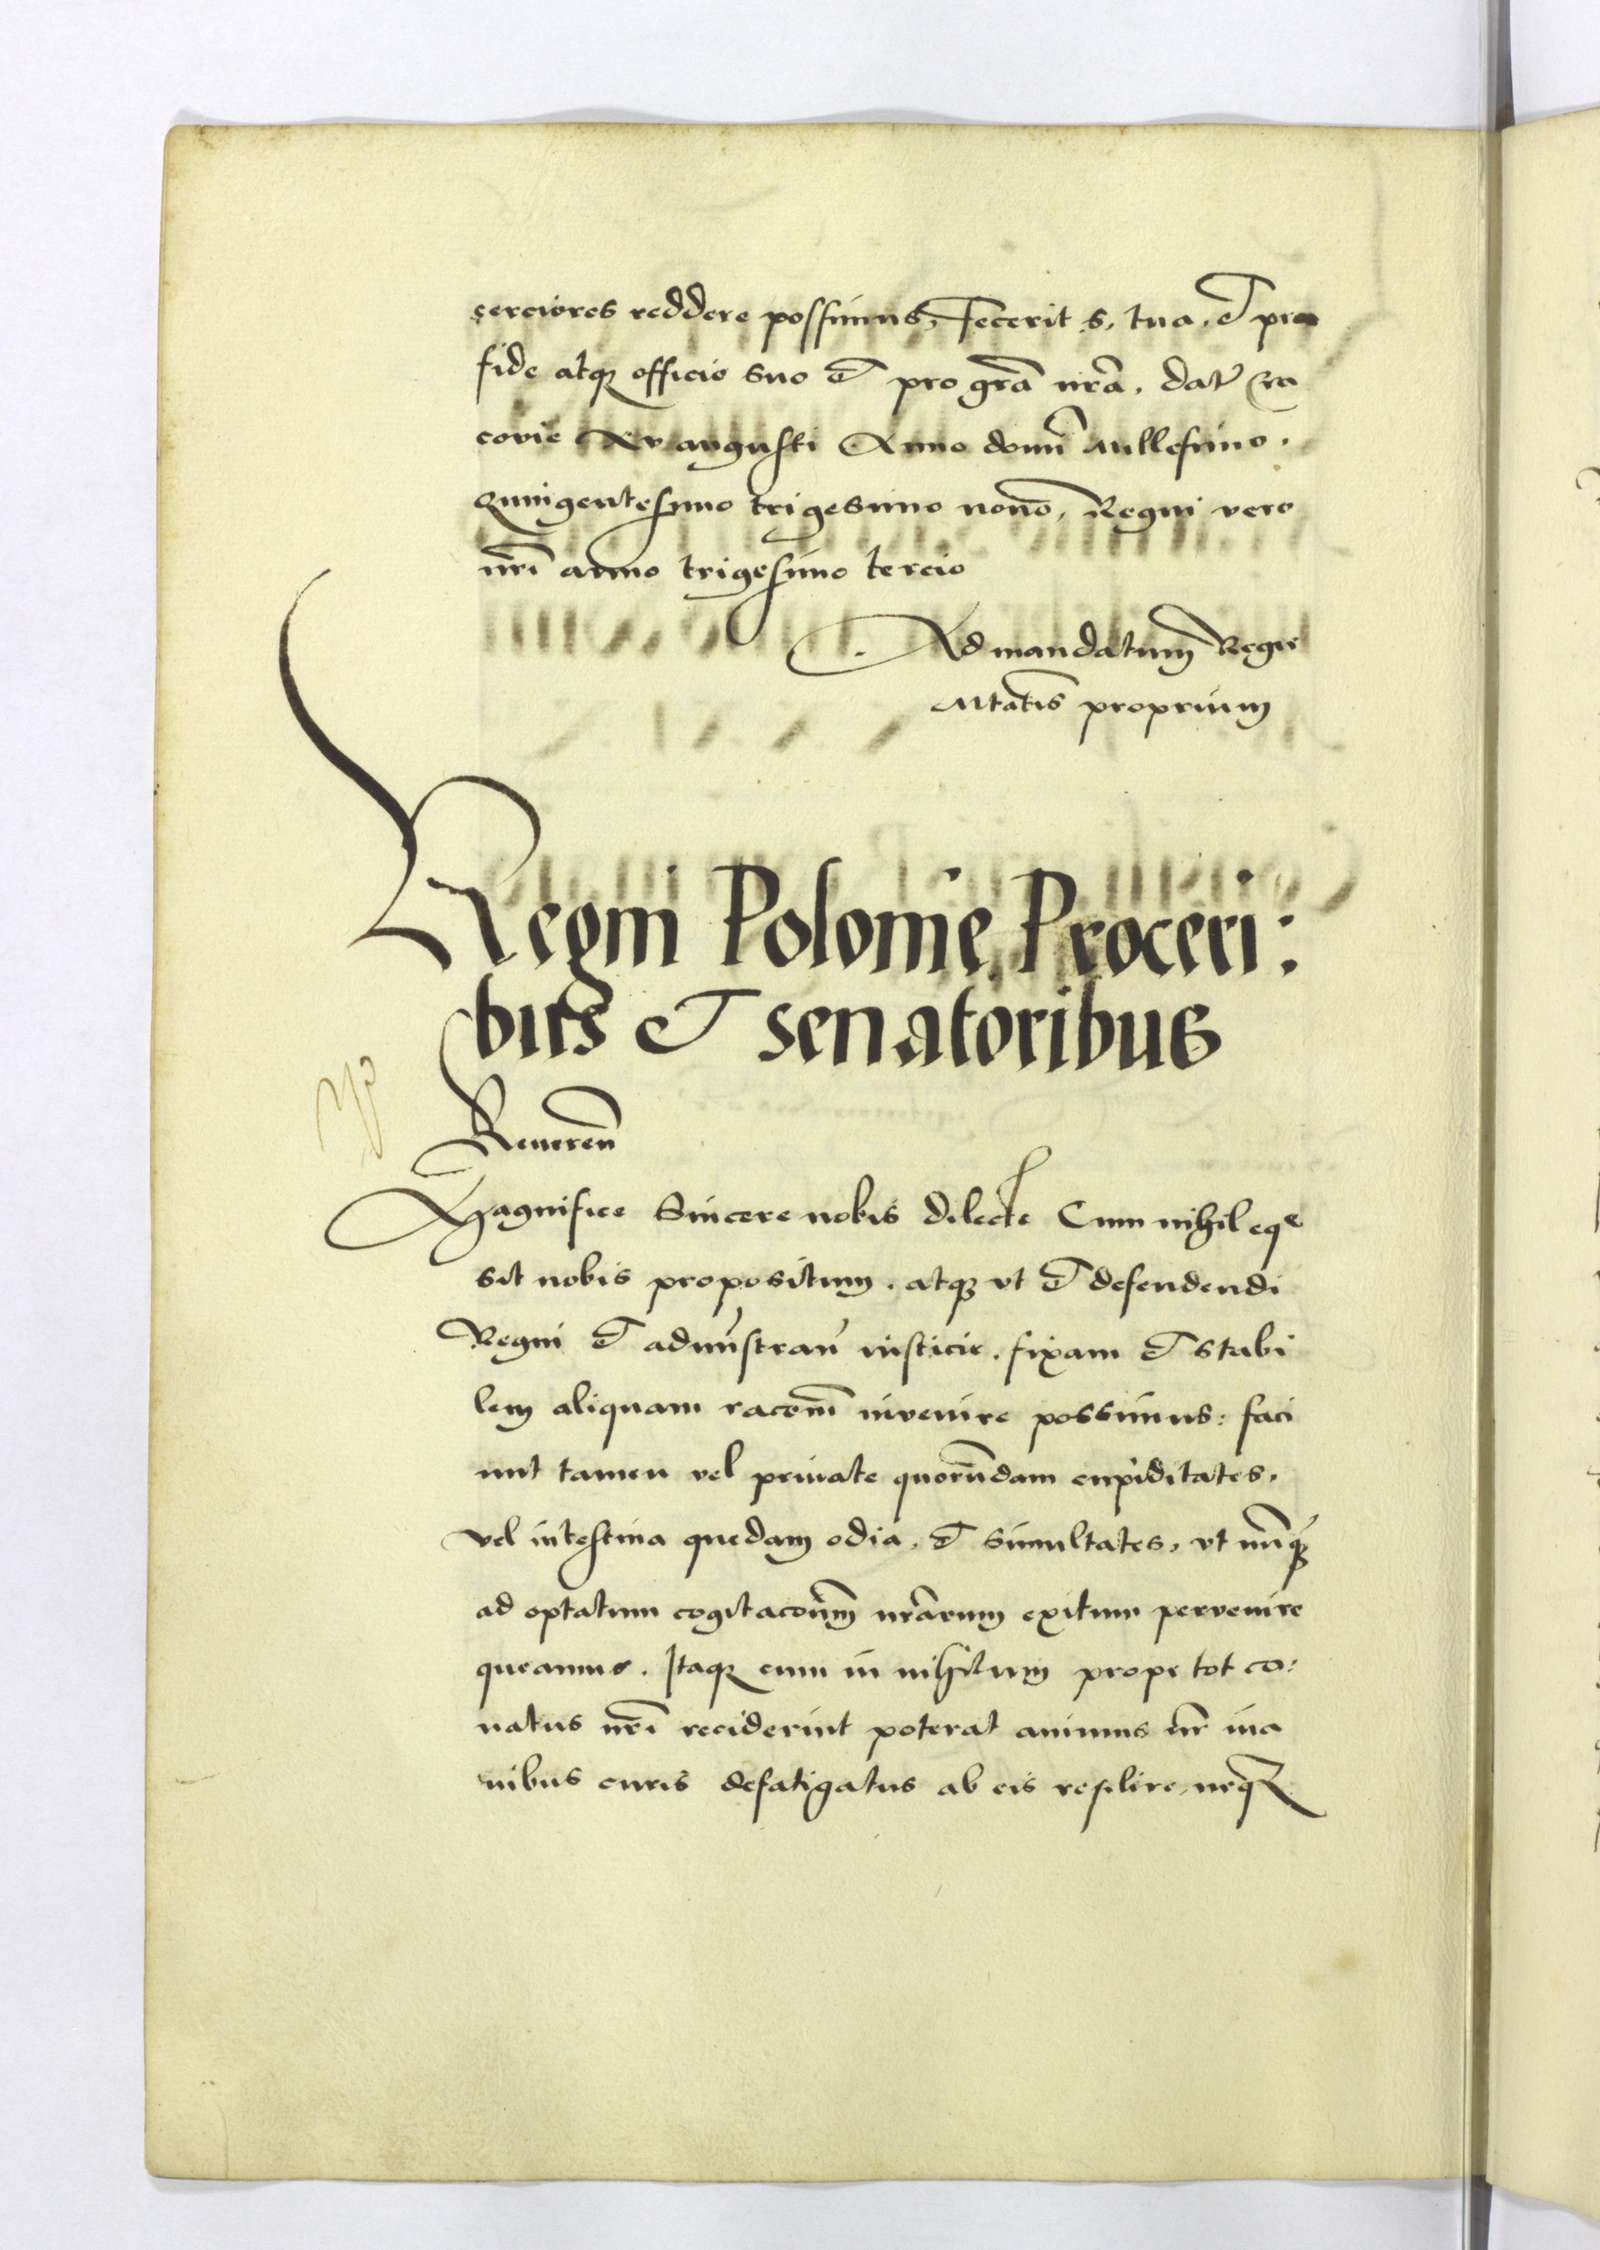 cerciores reddere possimus, Fecerit s. tua. et pro
fide atq; officio suo et pro gra͂ nra͂. Dat͂ Cra
covie xv augusti Anno domi͂ Millesimo.
Quingentesimo trigesimo nono, Regni vero
nri͂ anno trigesimo tercio
Ad mandatum Regie
Mtatis͂ proprium
Regni Polonie Proceri:
bus et senatoribus
Reueren͂
Magnifice Sincere nobis dilecte Cum nihil eqe
sit nobis propositum. atq; vt et defendendi
Regni et admi͂stran͂ iusticie. fixam et stabi
lem aliquam racom͂ invenire possimus: faci
unt tamen vel priuate quorundam cupiditates,
vel intestina quedam odia, et simultates, vt nu͂q;
ad optatum cogitaconu͂m nra͂rum exitum pervenire
queamus. Itaq; cum in nihilum prope tot co:
natus nri͂ reciderint poterat animus nr͂ ina
nibus curis defatigatus ab eis resilire, neq;